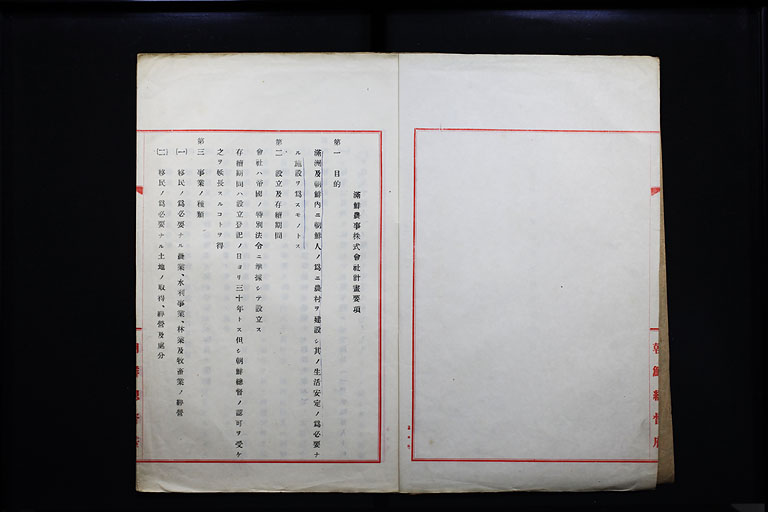 滿鮮農事株式會社計畫要項
第一 目的
滿洲及朝鮮內ニ朝鮮人ノ爲ニ農村ヲ建設シ其ノ生活安定ノ爲必要ナ
ル施設ヲ爲スモノトス
第二 設立及存續期間
會社ハ帝國ノ特別法令ニ準據シテ設立ス
存續期間ハ設立登記ノ日ヨリ三十年トス但シ朝鮮總督ノ認可ヲ受ケ
之ヲ延長スルコトヲ得
第三 事業ノ種類
(一) 移民ノ爲必要ナル農業、水利事業、林業及牧畜業ノ經營
(二) 移民ノ爲必要ナル土地ノ取得、經營及處分
朝鮮總督府